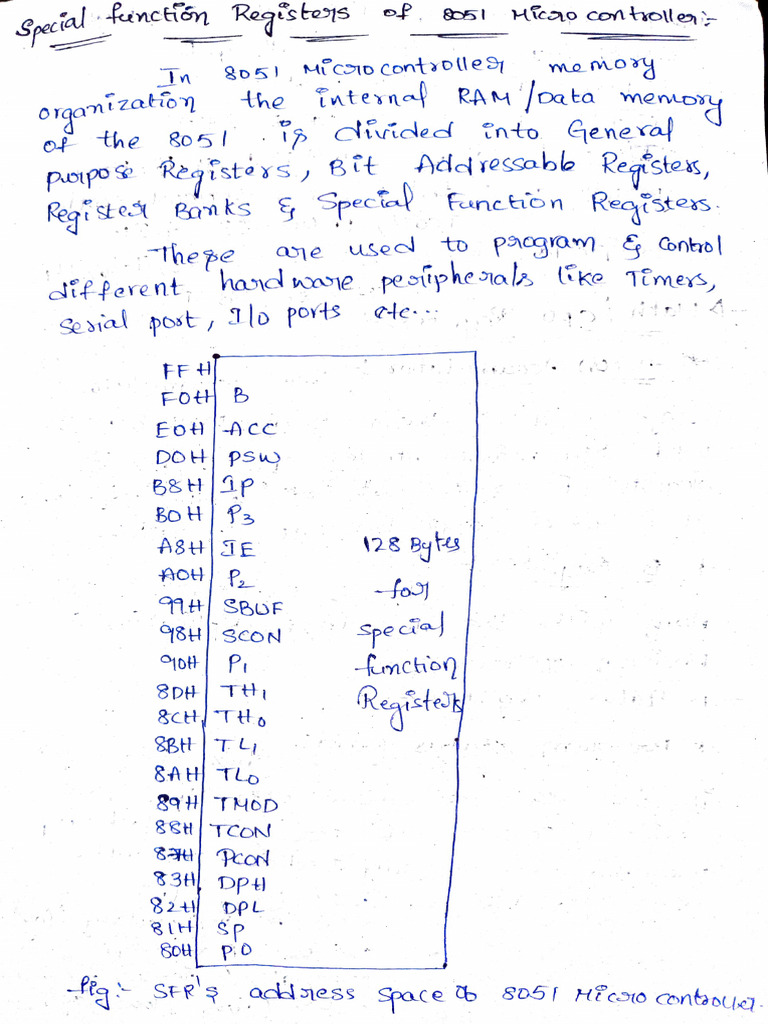 Special function Registers of 8051 Microcontroller:-
In 8051 Microcontroller memory
organization the internal RAM/Data memory
of the 8051 is divided into General
purpose Registers, Bit Addressable Registers,
Register Banks & Special Function Registers.
These are used to program & control
different hardware peripherals like Timers,
serial port, I/O ports etc...
FFH
F0H B
E0H ACC
D0H PSW
B8H IP
B0H P3
A8H IE 128 Bytes
A0H P2 for
99H SBUF
98H SCON special
90H P1 function
8DH TH1 Registers
8CH TH0
8BH TL1
8AH TL0
89H TMOD
88H TCON
87H PCON
83H DPH
82H DPL
81H SP
80H P0
fig:- SFR's address space of 8051 Microcontroller.